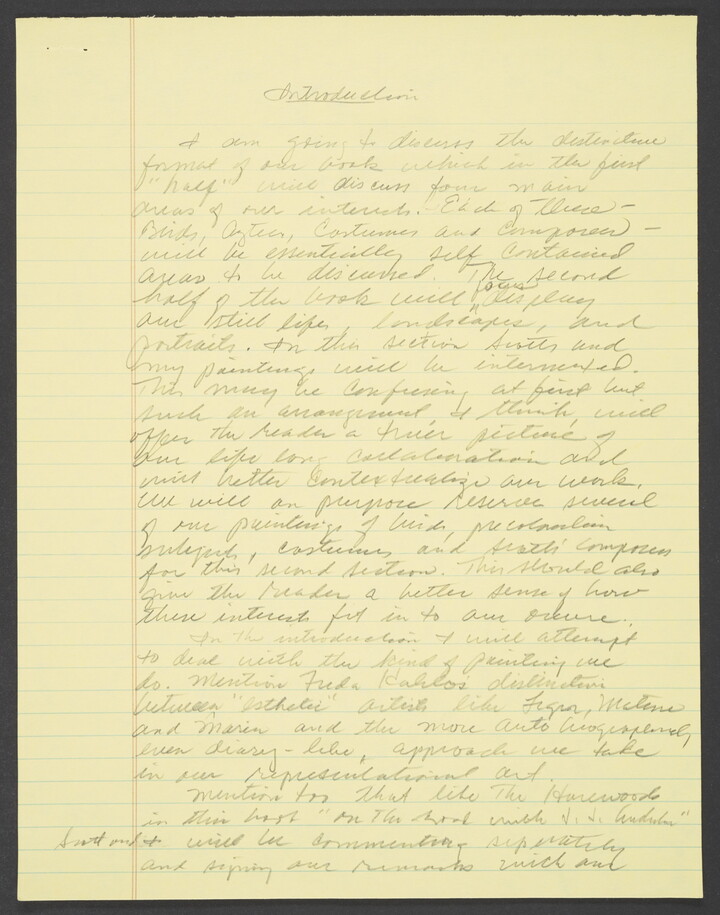 Introduction
I am going to discuss the distinctive
format of our book which in the first
"half" will discuss four main
areas of our interests. Each of these -
Birds, Aztecs, Costumes and Composers -
will be essentially self contained
areas to be discussed. The second
half of the book will display
our still lifes, landscapes, and
portraits. In this section Scott's and
my paintings will be intermixed.
This may be confusing at first but
such an arrangement, I think, will
offer the reader a truer picture of
our life long collaboration and
will better contextualize our work.
We will on purpose reserve several
of our paintings of birds, precolumbian
subjects, costumes and Scott's composers
for this second section. This should also
give the reader a better sense of how
these interests fit in to our oeuvre.
In the introduction I will attempt
to deal with the kind of painting we
do. Mention Freda Kahlo's distinction
between "esthetic" artists like Leger, Matisse
and Marin and the more autobiographical,
even diary-like, approach we take
in our representational art.
Mention too that like The Harwoods
in their book "On The Road with J. J. Audubon"
Scott and I will be commenting separately
and signing our remarks with our